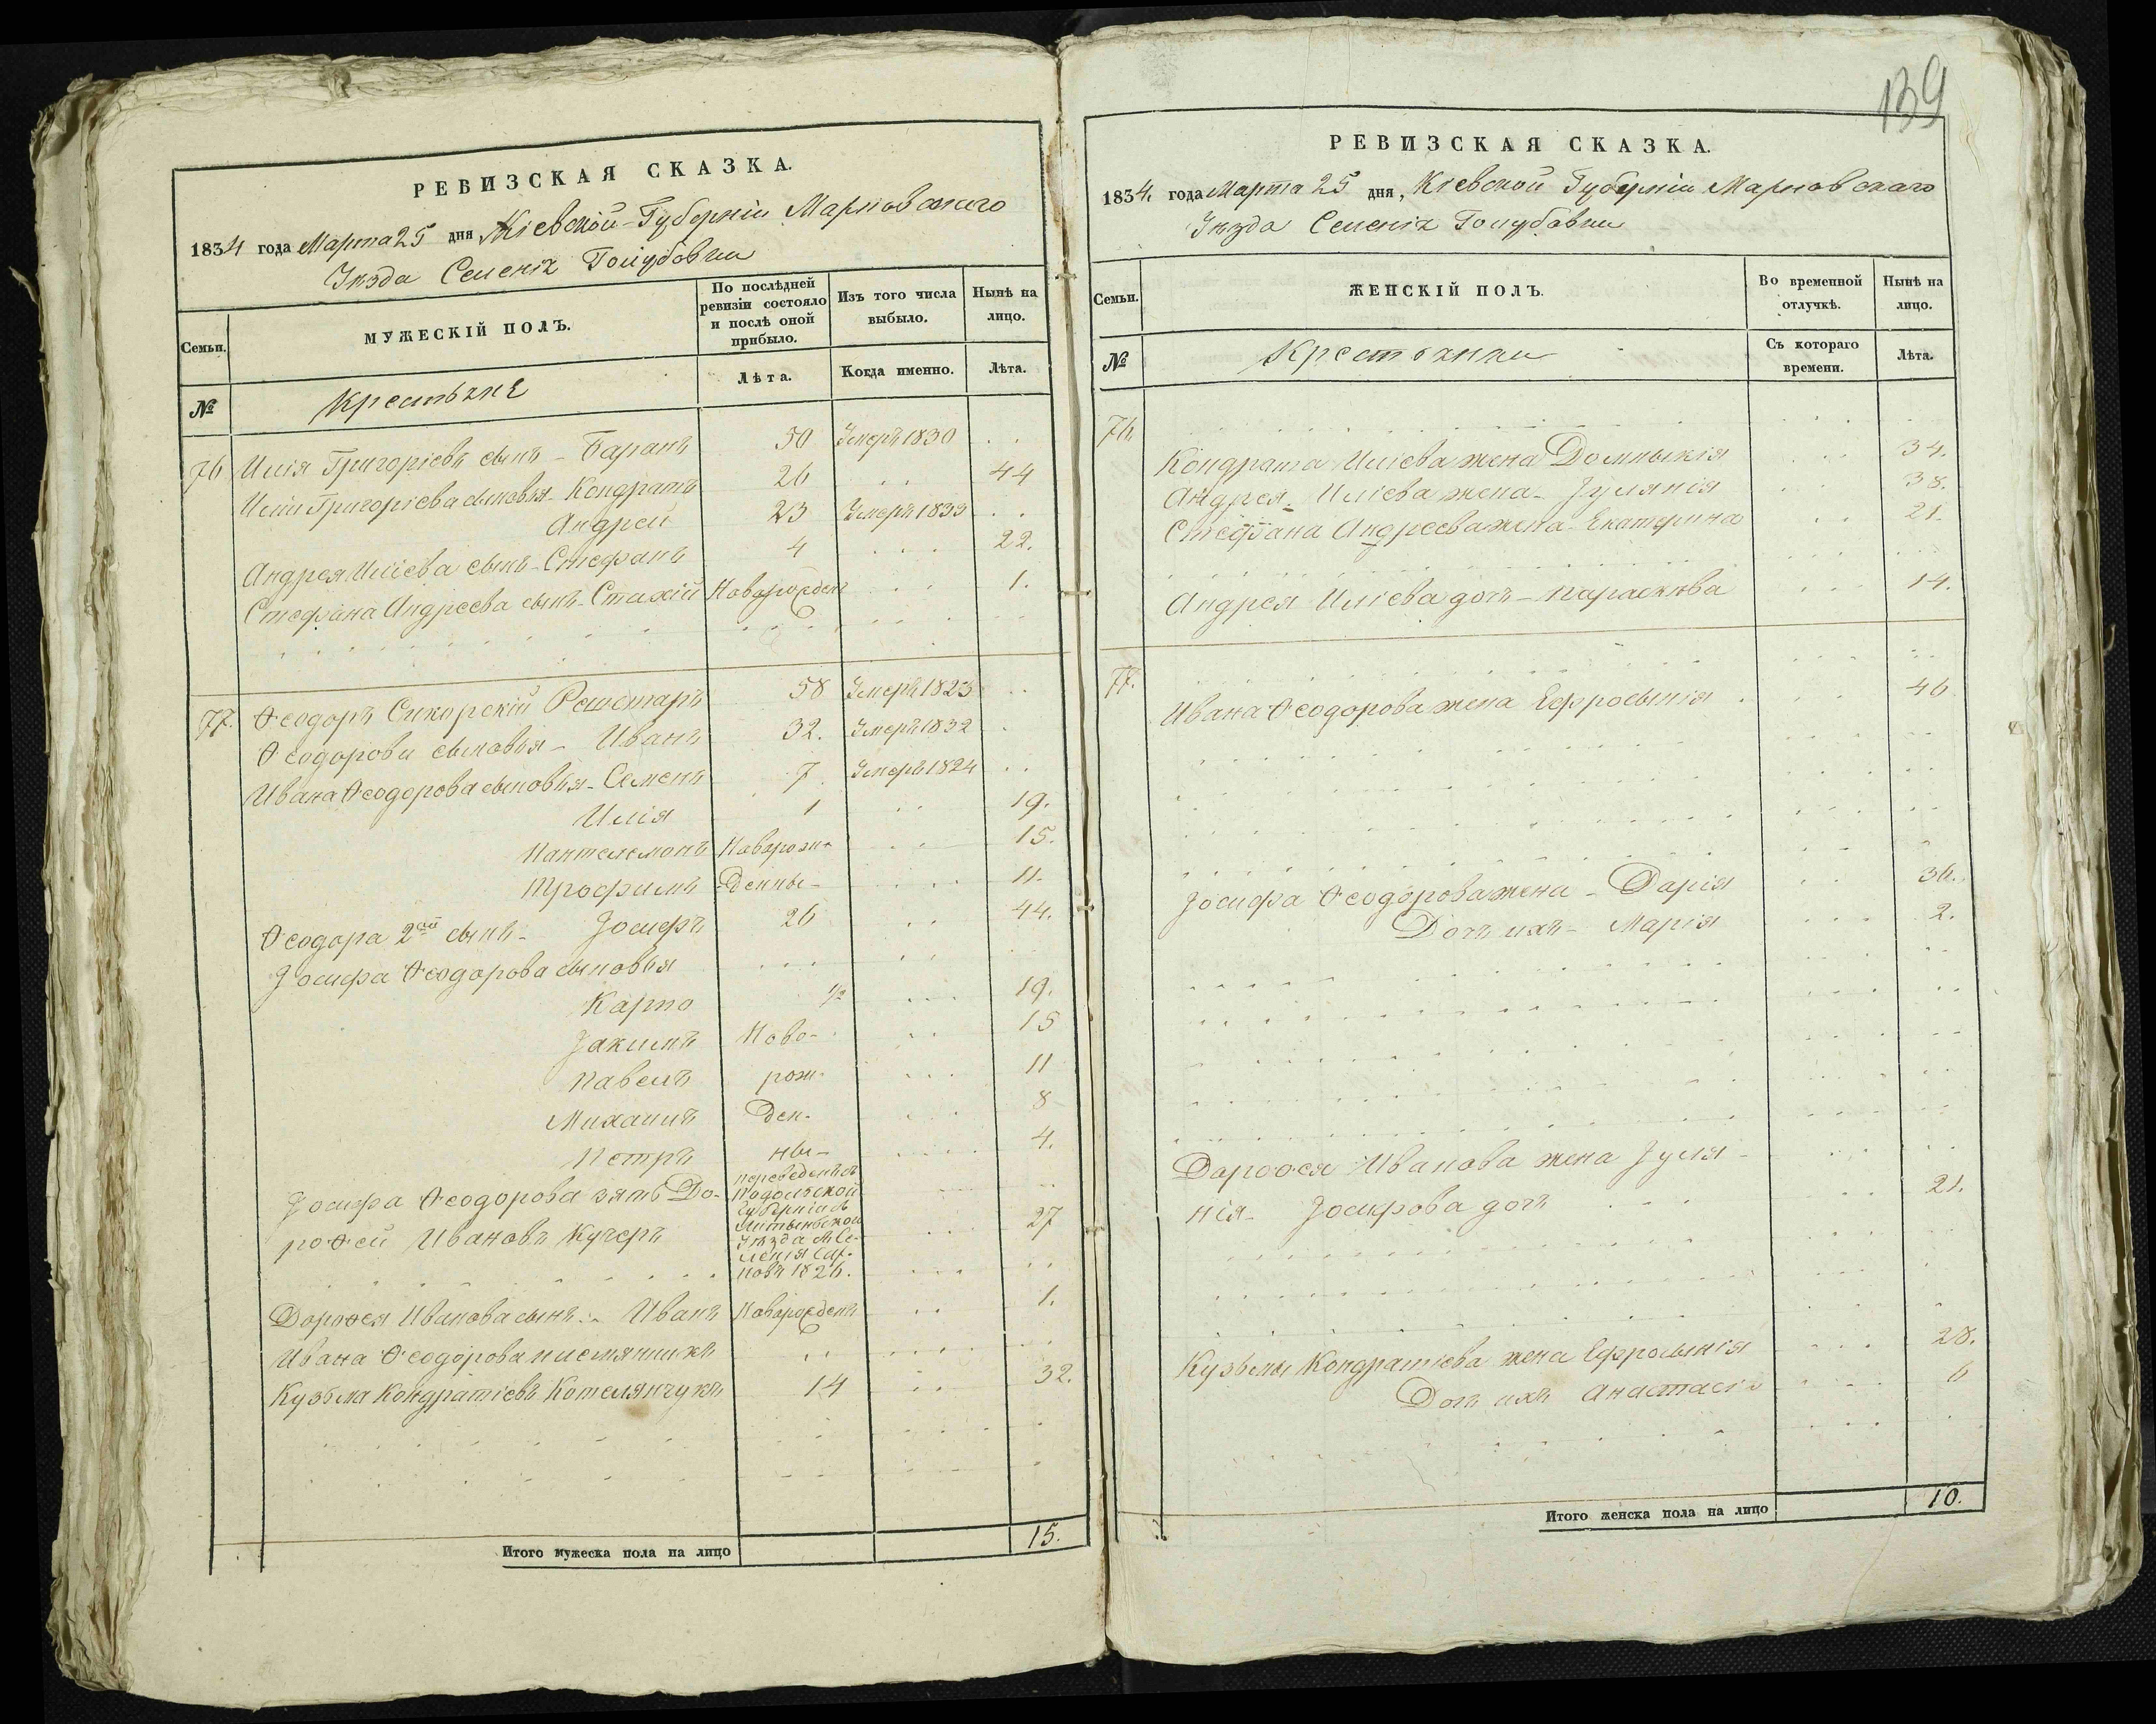 РЕВИЗСКАЯ СКАЗКА.
1834 года Марта 25 дня Кіевской Губерніи Махновскаго
Уезда Селенія Голубовки
Семьи.
МУЖЕСКІЙ ПОЛЪ.
По послѣдней ревизіи состояло и послѣ оной прибыло.
Изъ того числа выбыло.
Нынѣ на лицо.
№
Крестьяне
Лѣта.
Когда именно.
Лѣта.
76 Илія Григоріевъ сынъ - Баранъ 50 Умеръ 1830
Иліи Григоріева сыновья - Кондратъ 26 44
Андрей 23 Умеръ 1833
Андрея Иліева сынъ - Стефанъ 4 22.
Стефана Андреева сынъ - Стахій Новорожденъ 1.
77. Ѳеодоръ Сикорскій Решетаръ 58 Умеръ 1823
Ѳеодорови сыновья - Иванъ 32. Умеръ 1832
Ивана Ѳеодорова сыновья - Семенъ 7. Умеръ 1824
Илія 1 19.
Пантелемонъ Новорож- 15.
Трофимъ -денны- 11.
Ѳеодора 2ой сынъ - Іосифъ 26 44.
Іосифа Ѳеодорова сыновья
Карпо 1/2 19.
Іакимъ Ново- 15
Павелъ рож- 11
Михаилъ ден- 8
Петръ ны- 4.
Іосифа Ѳеодорова зять До-
роѳей Ивановъ Кучеръ 27
переведенъ съ
Подольской
Губерніи
Литынской
Уезда
новъ 1826.
Дороѳея Иванова сынъ - Иванъ Новорожденъ 1.
Ивана Ѳеодорова племянникъ
Кузьма Кондратіевъ Котелянчукъ 14 32.
Итого мужеска пола на лицо 15.
139
РЕВИЗСКАЯ СКАЗКА.
1834. года Марта 25 дня, Кіевской Губерніи Махновскаго
Уезда Селенія Голубовки
Семьи.
ЖЕНСКІЙ ПОЛЪ.
Во временной отлучкѣ.
Нынѣ на лицо.
№
Крестьянки
Съ котораго времени.
Лѣта.
76
Кондрата Иліева жена Домникія 34.
Андрея Иліева жена - Іулянія 38.
Стефана Андреева жена - Екатерина 21.
Андрея Иліева дочь - Параскева 14.
77.
Ивана Ѳеодорова жена Ефросынія 46
Іосифа Ѳеодорова жена - Дарія 36.
Дочь ихъ - Марія 2.
Дороѳея Иванова жена Іуля-
нія - Іосифова дочь 21.
Кузьмы Кондратіева жена Ефросынія 28.
Дочь ихъ Анастасія 6
Итого женска пола на лицо 10.